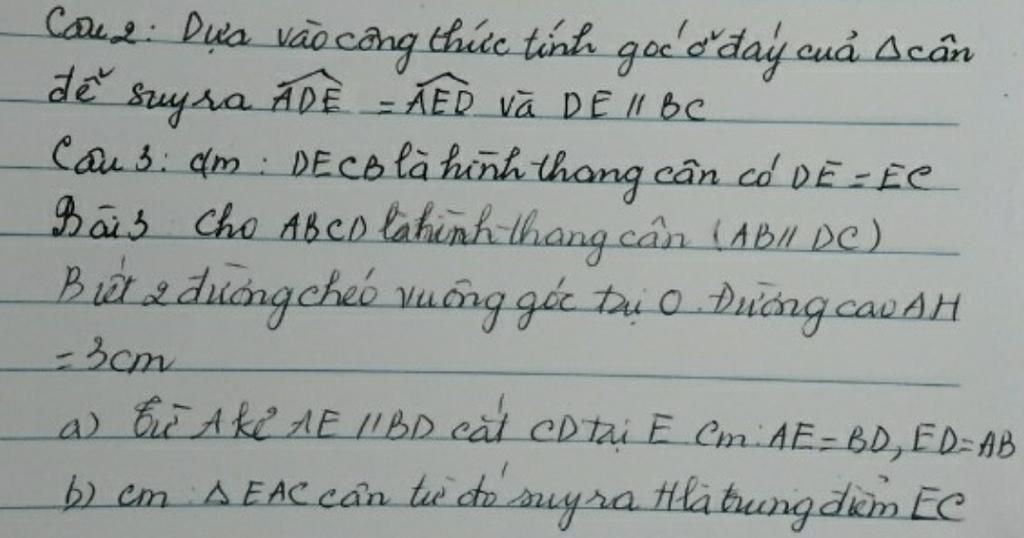 Câu 2: Dựa vào công thức tính góc ở đáy của Δ cân
để suy ra ADE = AED và DE // BC
Câu 3: cm: DECB là hình thang cân có DE = EC
Bài 3 Cho ABCD là hình thang cân (AB // DC)
Biết 2 đường chéo vuông góc tại O. Đường cao AH
= 3cm
a) Từ A kẻ AE // BD cắt CD tại E Cm: AE = BD, ED = AB
b) cm: Δ EAC cân từ đó suy ra H là trung điểm EC